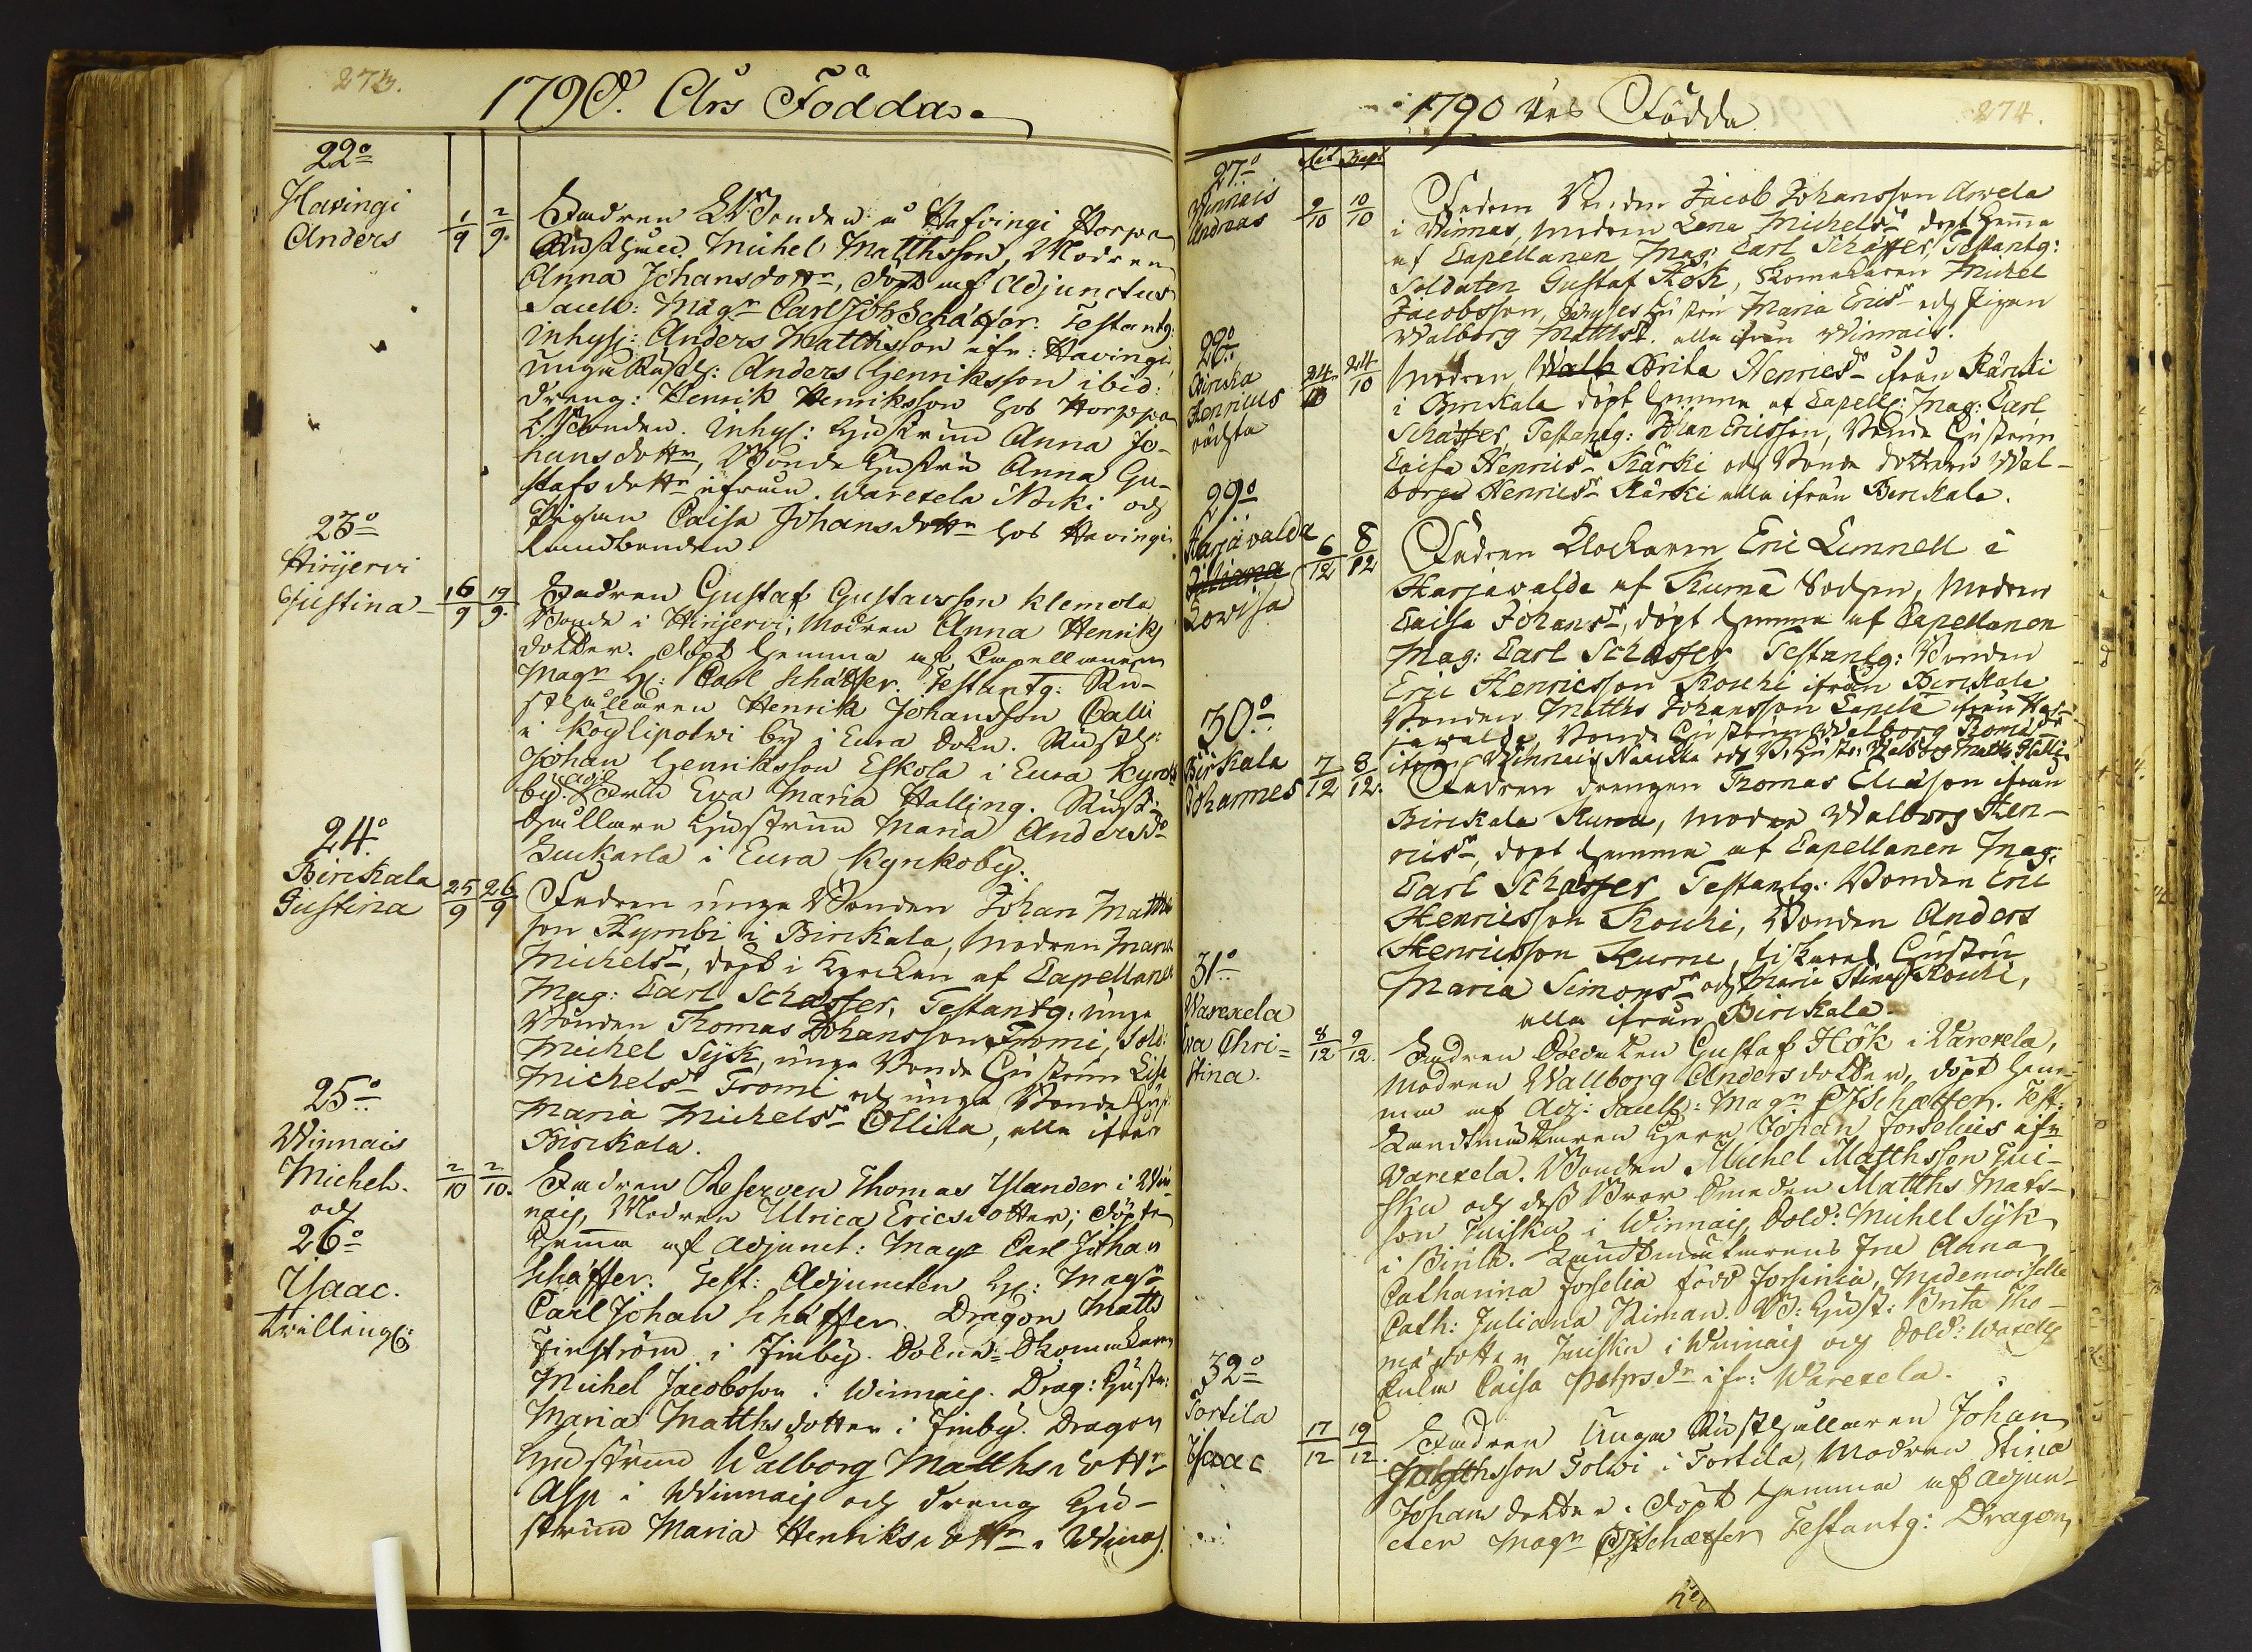 273.
1790. Års Födda.
22o
Havingi
Anders
1/9 2/9.
Fadren LBonden å Hafvingi Horpo
Rusth: Michel Matthsson, Modren
Anna Johansdottr, döpt af Adjunctus
Sacell: Magr Carl Joh Schäffer. Testantg:
Inhys: Anders Matthsson ifr: Havingi,
unga Rusth: Anders Henriksson ibid:
Dreng: Henrik Henriksson hos Horppo
LBonden. Inhys: Hustrun Anna Jo-
hansdottr, Bonde Hustrun Anna Gu-
stafsdottr ifrån Warexela Nocki och
Pigan Caisa Johansdottr hos Havingi
Landbonden.
23o
Hirijervi
Justina
16/9 19/9.
Fadren Gustaf Gustavsson Klemola
Bonde i Hirijervi, Modren Anna Henriks
dotter. döpt hemma af Capellanen
Magr H: Carl Schäffer. Testantg: Ru-
sthållaren Henrik Johansson Calli
i Köylipolvi by i Eura Sokn. Rusth:
Johan Henriksson Eskola i Eura Kyrko
by. Eva Maria Halling. Rust-
hållare Hustrun Maria Andersdr
Luckarla i Eura Kyrkoby.
24.o
Birckala
Justina
25/9 26/9
Fadren unga Bonden Johan Matths
son Kymbi i Birckala, Modren Maria
Michelsdr, döpt i Kyrckan af Capellanen
Mag: Carl Schæffer, Testantg: unga
Bonden Thomas Johansson Tromi, Sold:
Michel Sijk, unga Bonde Hustrun Lisa
Michelsdr Tromi och unga Bonde Hust:
Maria Michelsdr Ollila, alla ifrån
Birckala.
25o
Winnais
Michel.
och
26o
Isaac.
Tvillingh:
2/10 2/10.
Fadren Reserven Thomas Ylander i Win
nais, Modren Ulrica Ericsdotter; döpte
hemma af Adjunct: Magr Carl Johan
Schäffer. Test: Adjuncten H: Magr
Carl Johan Schäffer. Dragon Matts
Finström i Finby. Sokne Skomakaren
Michel Jacobsson i Winnais. Drag: Hustr:
Maria Matthsdotter i Finby. Dragon
Hustrun Walborg Matthsdottr
Asp i Winnais och dreng Hu-
strun Maria Henriksdottr i Winns.
1790 års Födda
274.
Nat Bapt
27o
Winnais
Andreas
9/10 10/10
Fadren Bonden Jacob Johansson Arvela
i Winnais, modren Lena Michelsdr döpt hemma
af Capellanen Mag: Carl Schäffer, Testantg:
Soldaten Gustaf Hök, Skomakaren Michel
Jacobsson, Inhyses Hustrun Maria Ericsdr och Pigan
Walborg Matthsdr. alla ifrån Winnais.
28o
Birckala
Henricus
oächta
24/10 24/10
Modren Walb Brita Henricsdr ifrån Kärcki
i Birckala döpt hemma af Capell: Mag: Carl
Schæffer, Testantg: Johan Ericsson, Bonde Hustrun
Caisa Henricsdr Kärcki och Bonde dottren Wal-
borg Henricsdr Kärcki alla ifrån Birckala.
29o
Harjavalda
Juliana
Lovisa
6/12 8/12
Fadren Klockaren Eric Lennell i
Harjavalda af Kumå Sochen, Modren
Caisa Johansdr, döpt hemma af Capellanen
Mag: Carl Schæffer, Testantg: Bonden
Eric Henricsson Kouhi ifrån Birckala
Bonden Matths Johansson Lapila ifrån Har-
javalda, Bonde Hustrun Walborg Thomædr
ifrån Winnais Navilla och B: Hustr: Walborg Matth:
30o
Birckala
Johannes
7/12 8/12.
Fadren drengen Thomas Eliasson ifrån
Birckala Kurra, modren Walborg Hen-
ricsdr, döpt hemma af Capellanen Mag:
Carl Schæffer, Testantg: Bonden Eric
Henricsson Kouhi, Bonden Anders
Henricsson Kurra, Hustru
Maria Simonsdr och Maria Stina Kouhi,
alla ifrån Birckala.
31o
Warexela
Eva Chri=
stina.
8/12 9/12.
Fadren Soldaten Gustaf Hök i Varexela,
Modren Wallborg Andersdotter, döpt hem-
ma af Adj: Sacell: Magr CJSchæffer. Test:
Landtmätaren Herr Johan Forselius ifr
Varexela. Bonden Michel Matthsson Tui-
sku och deß Bror Smeden Matths Mats-
son Tuisku i Winnais, Sold: Michel Sÿk
i Birkla. Landtmätarens Fru Anna
Catharina Forselia född Forsenia, Mademoiselle
Cath: Juliana Riman. B: Hust: Brita Tho-
mædotter Tuisku i Winnais och Sold: Warelse
Enka Caisa Petersdr ifr: Warexela.
32o
Torttila
Isaac
17/12 19/12.
Fadren Unga Rusthållaren Johan
Matthsson Tolvi i Torttila, Modren Stina
Johansdotter. döpt hemma af Adjun-
cten Magr CJSchæffer Testantg: Dragon